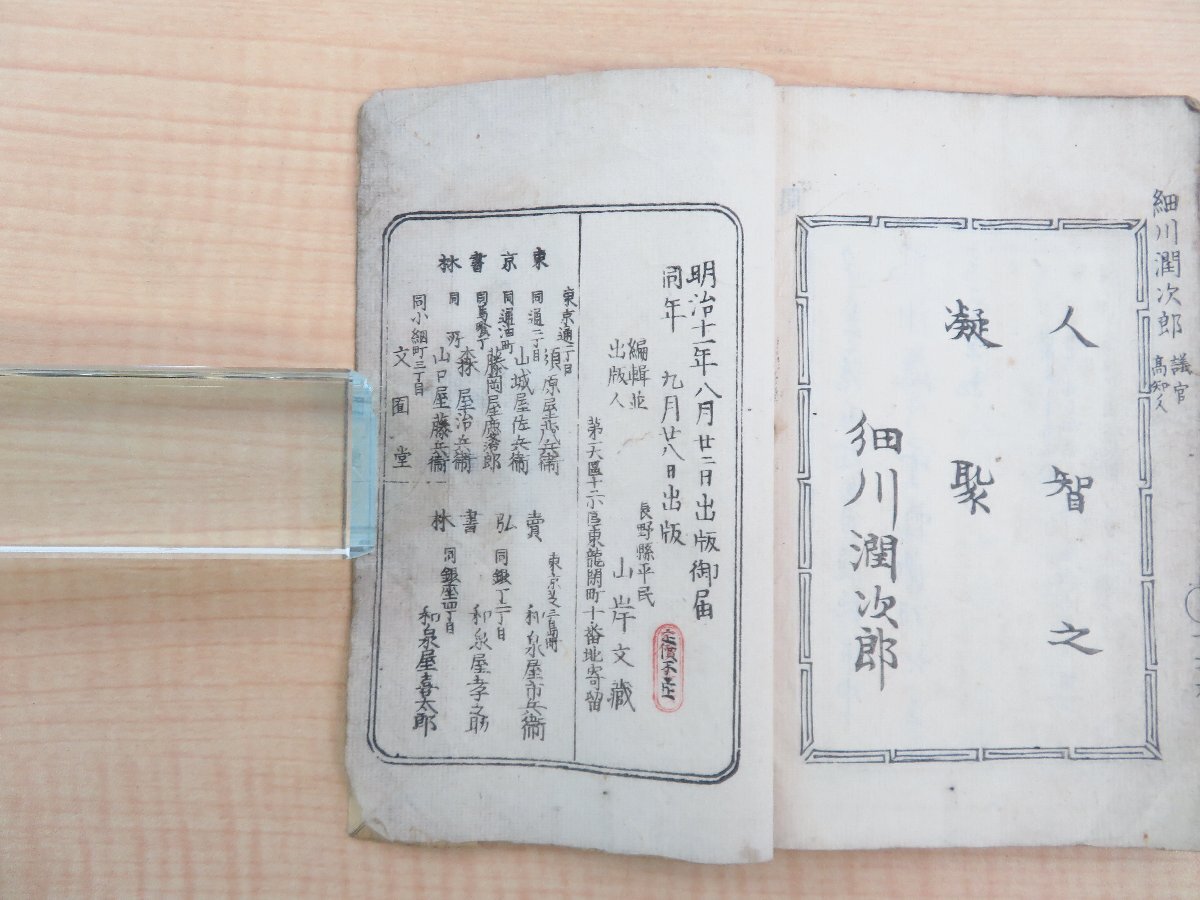 細川潤次郎 議官 高知人
人智之
凝聚
細川潤次郎
明治十一年八月廿二日出版御届
同年 九月廿八日出版
編輯並出版人
長野縣平民
山岸文藏
定價不
第一大區十二小區東龍閑町十番地寄留
東京書林
東京通一丁目
須原屋茂兵衞
同通二丁目
山城屋佐兵衞
同通油町
藤岡屋慶次郎
同馬喰丁
森屋治兵衞
同所
山口屋藤兵衞
同小網町三丁目
文囿堂
賣弘書林
東京芝三島町
和泉屋市兵衞
同銀丁二丁目
和泉屋孝之助
同銀座四丁目
和泉屋喜太郎